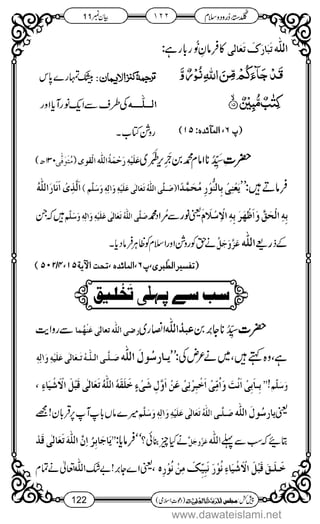 بیان نمبر 11 ۱۲۲ گلدستۂ درود و سلام
اللّٰہ تَبَارَکَ وَتَعَالٰی کا فرمانِ نُور بار ہے:
قَدْ جَآءَکُمْ مِّنَ اللّٰہِ نُوْرٌ وَّ ترجمۂ کنزالایمان: بیشک تمہارے پاس
کِتٰبٌ مُّبِیْنٌ ۙ﴿۱۵﴾ اللّٰہ کی طرف سے ایک نور آیا اور
(پ ۶، المائدہ: ۱۵) روشن کتاب۔
حضرت سَیِّدُنا امام محمد بن جَرِیر طَبَری عَلَیْہِ رَحْمَۃُ اللّٰہِ القوی (مُتَوَفّٰی ۳۱۰ھ)
فرماتے ہیں: ’’یَعْنِیْ بِالنُّوْرِ مُحَمَّدًا (صَلَّی اللّٰہُ تَعَالٰی عَلَیْہِ وَاٰلِہٖ وَسَلَّم) اَلَّذِیْ اَنَارَ اللّٰہُ
بِہِ الْحَقَّ وَاَظْھَرَ بِہِ الْاِسْلَامَ یعنی نور سے مُراد محمد صَلَّی اللّٰہُ تَعَالٰی عَلَیْہِ وَاٰلِہٖ وَسَلَّم ہیں کہ جن
کے ذریعے اللّٰہ عَزَّوَجَلَّ نے حق کو روشن اور اسلام کو ظاہر فرما دیا۔
(تفسیر الطبری، پ۶، المائدہ، تحت الآیۃ ۱۵، ۵۰۲/۴)
سب سے پہلی تخلیق
حضرت سَیِّدُنا جابر بن عبدُ اللّٰہ انصاری رضی اللّٰہ تعالٰی عنہما سے روایت
ہے، وہ کہتے ہیں، میں نے عرض کی: ’’یَارسولَ اللّٰہ صَلَّی اللّٰہُ تَعَالٰی عَلَیْہِ وَاٰلِہٖ
وَسَلَّم! بِاَبِیْ اَنْتَ وَاُمِّیْ اَخْبِرْنِیْ عَنْ اَوَّلِ شَیْءٍ خَلَقَہُ اللّٰہُ تَعَالٰی قَبْلَ الْاَشْیَاءِ،
یعنی یارسولَ اللّٰہ صَلَّی اللّٰہُ تَعَالٰی عَلَیْہِ وَاٰلِہٖ وَسَلَّم میرے ماں باپ آپ پر قربان! مجھے
بتائیے کہ سب سے پہلے اللّٰہ عَزَّوَجَلَّ نے کیا چیز بنائی؟‘‘ فرمایا: ’’یَاجَابِرُ اِنَّ اللّٰہَ تَعَالٰی قَدْ
خَلَقَ قَبْلَ الْاَشْیَاءِ نُوْرَ نَبِیِّکَ مِنْ نُوْرِہٖ، یعنی اے جابر! بے شک اللّٰہ تعالٰی نے تمام
122 پیش کش: مجلس اَلْمَدِیْنَۃُ الْعِلْمِیَّۃ (دعوتِ اسلامی)
www.dawateislami.net